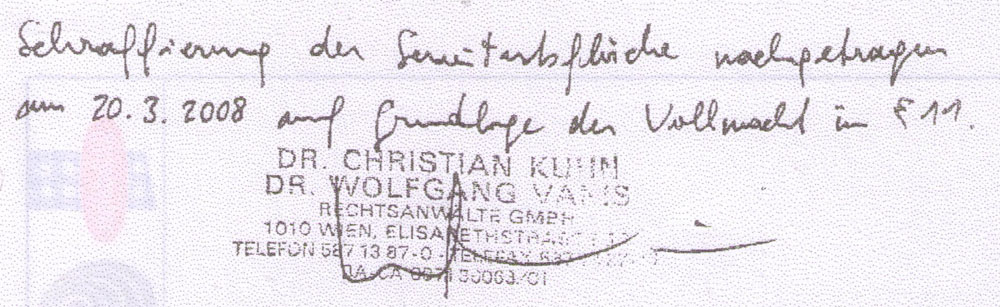 Schraffierung der Servitutsfläche nachgetragen
am 20.3.2008 auf Grundlage der Vollmacht in § 11.
DR. CHRISTIAN KUHN
DR. WOLFGANG VANIS
RECHTSANWÄLTE GMBH
1010 WIEN, ELISABETHSTRASSE
TELEFON 587 13 87-0 - TELEFAX
BA-CA